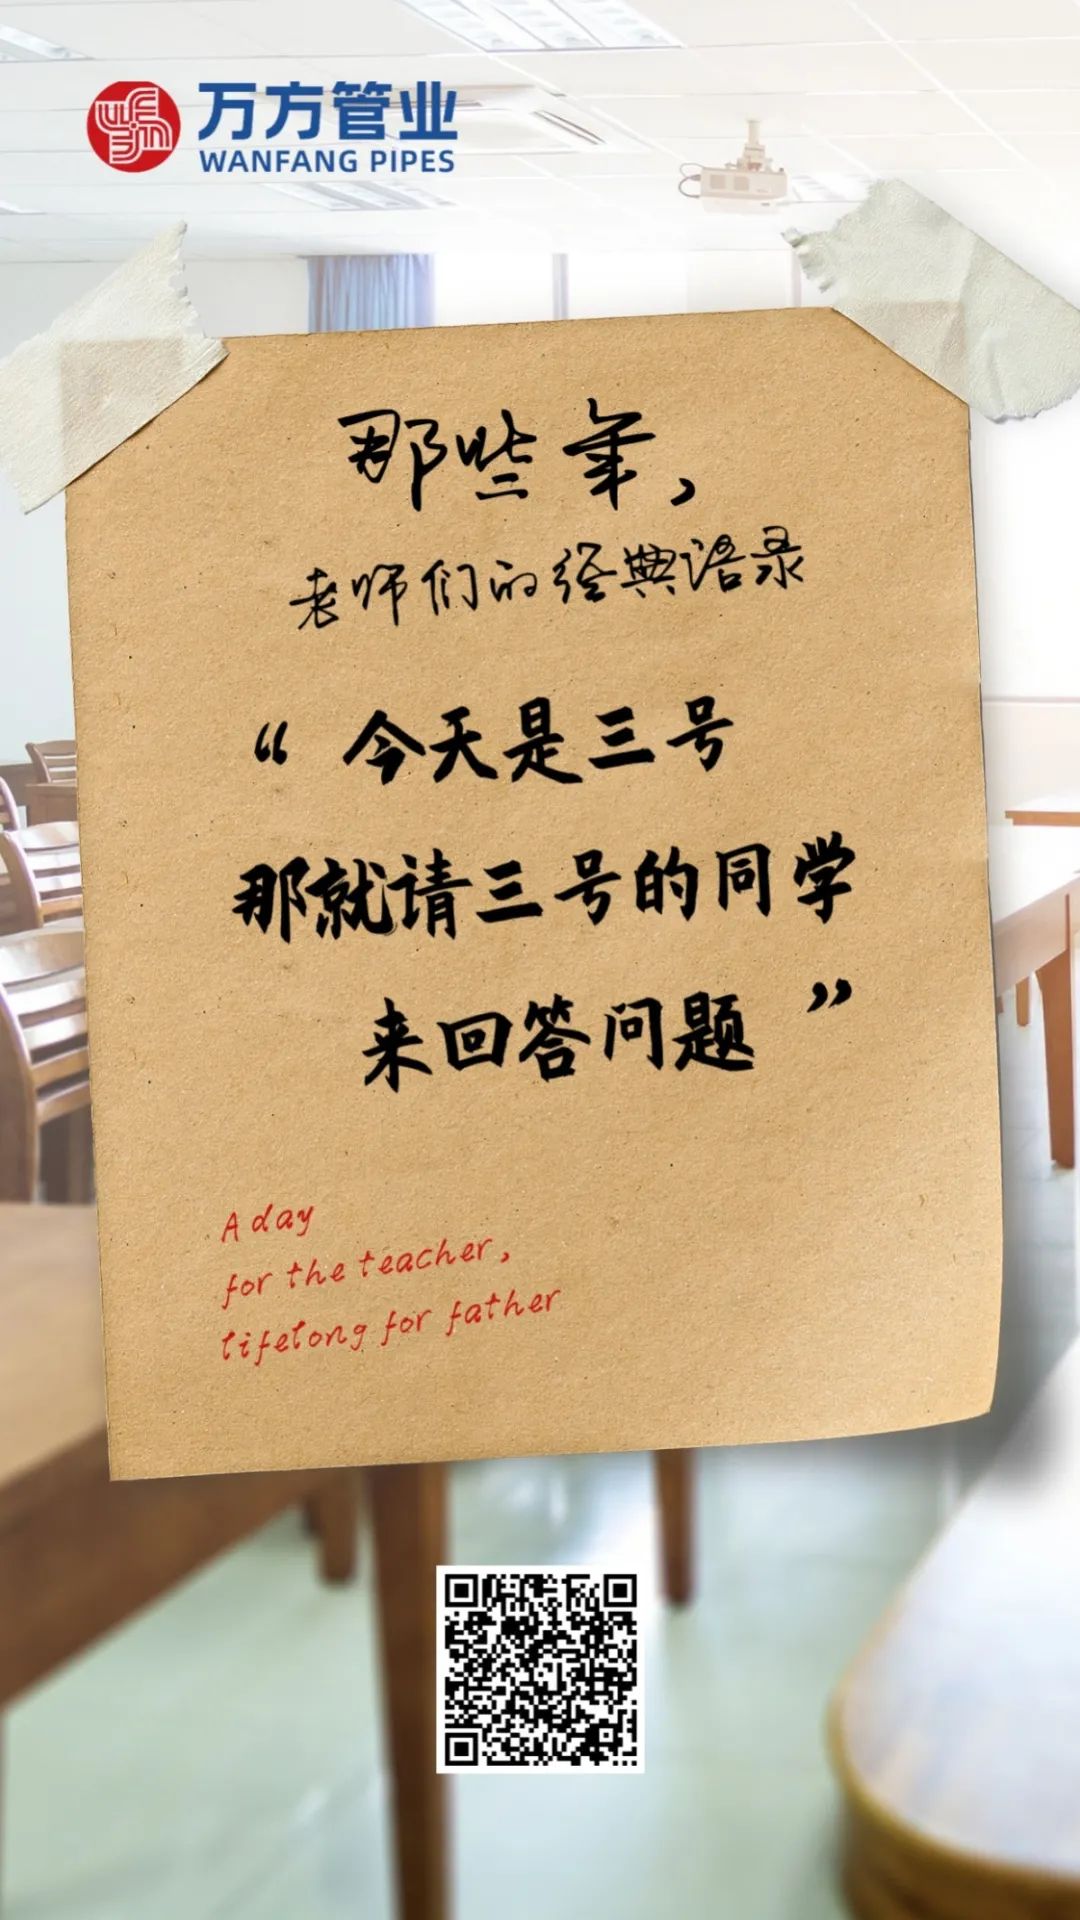 万方管业
WANFANG PIPES
那些年，
老师们的经典语录
“今天是三号
那就请三号的同学
来回答问题”
A day
for the teacher,
lifelong for father